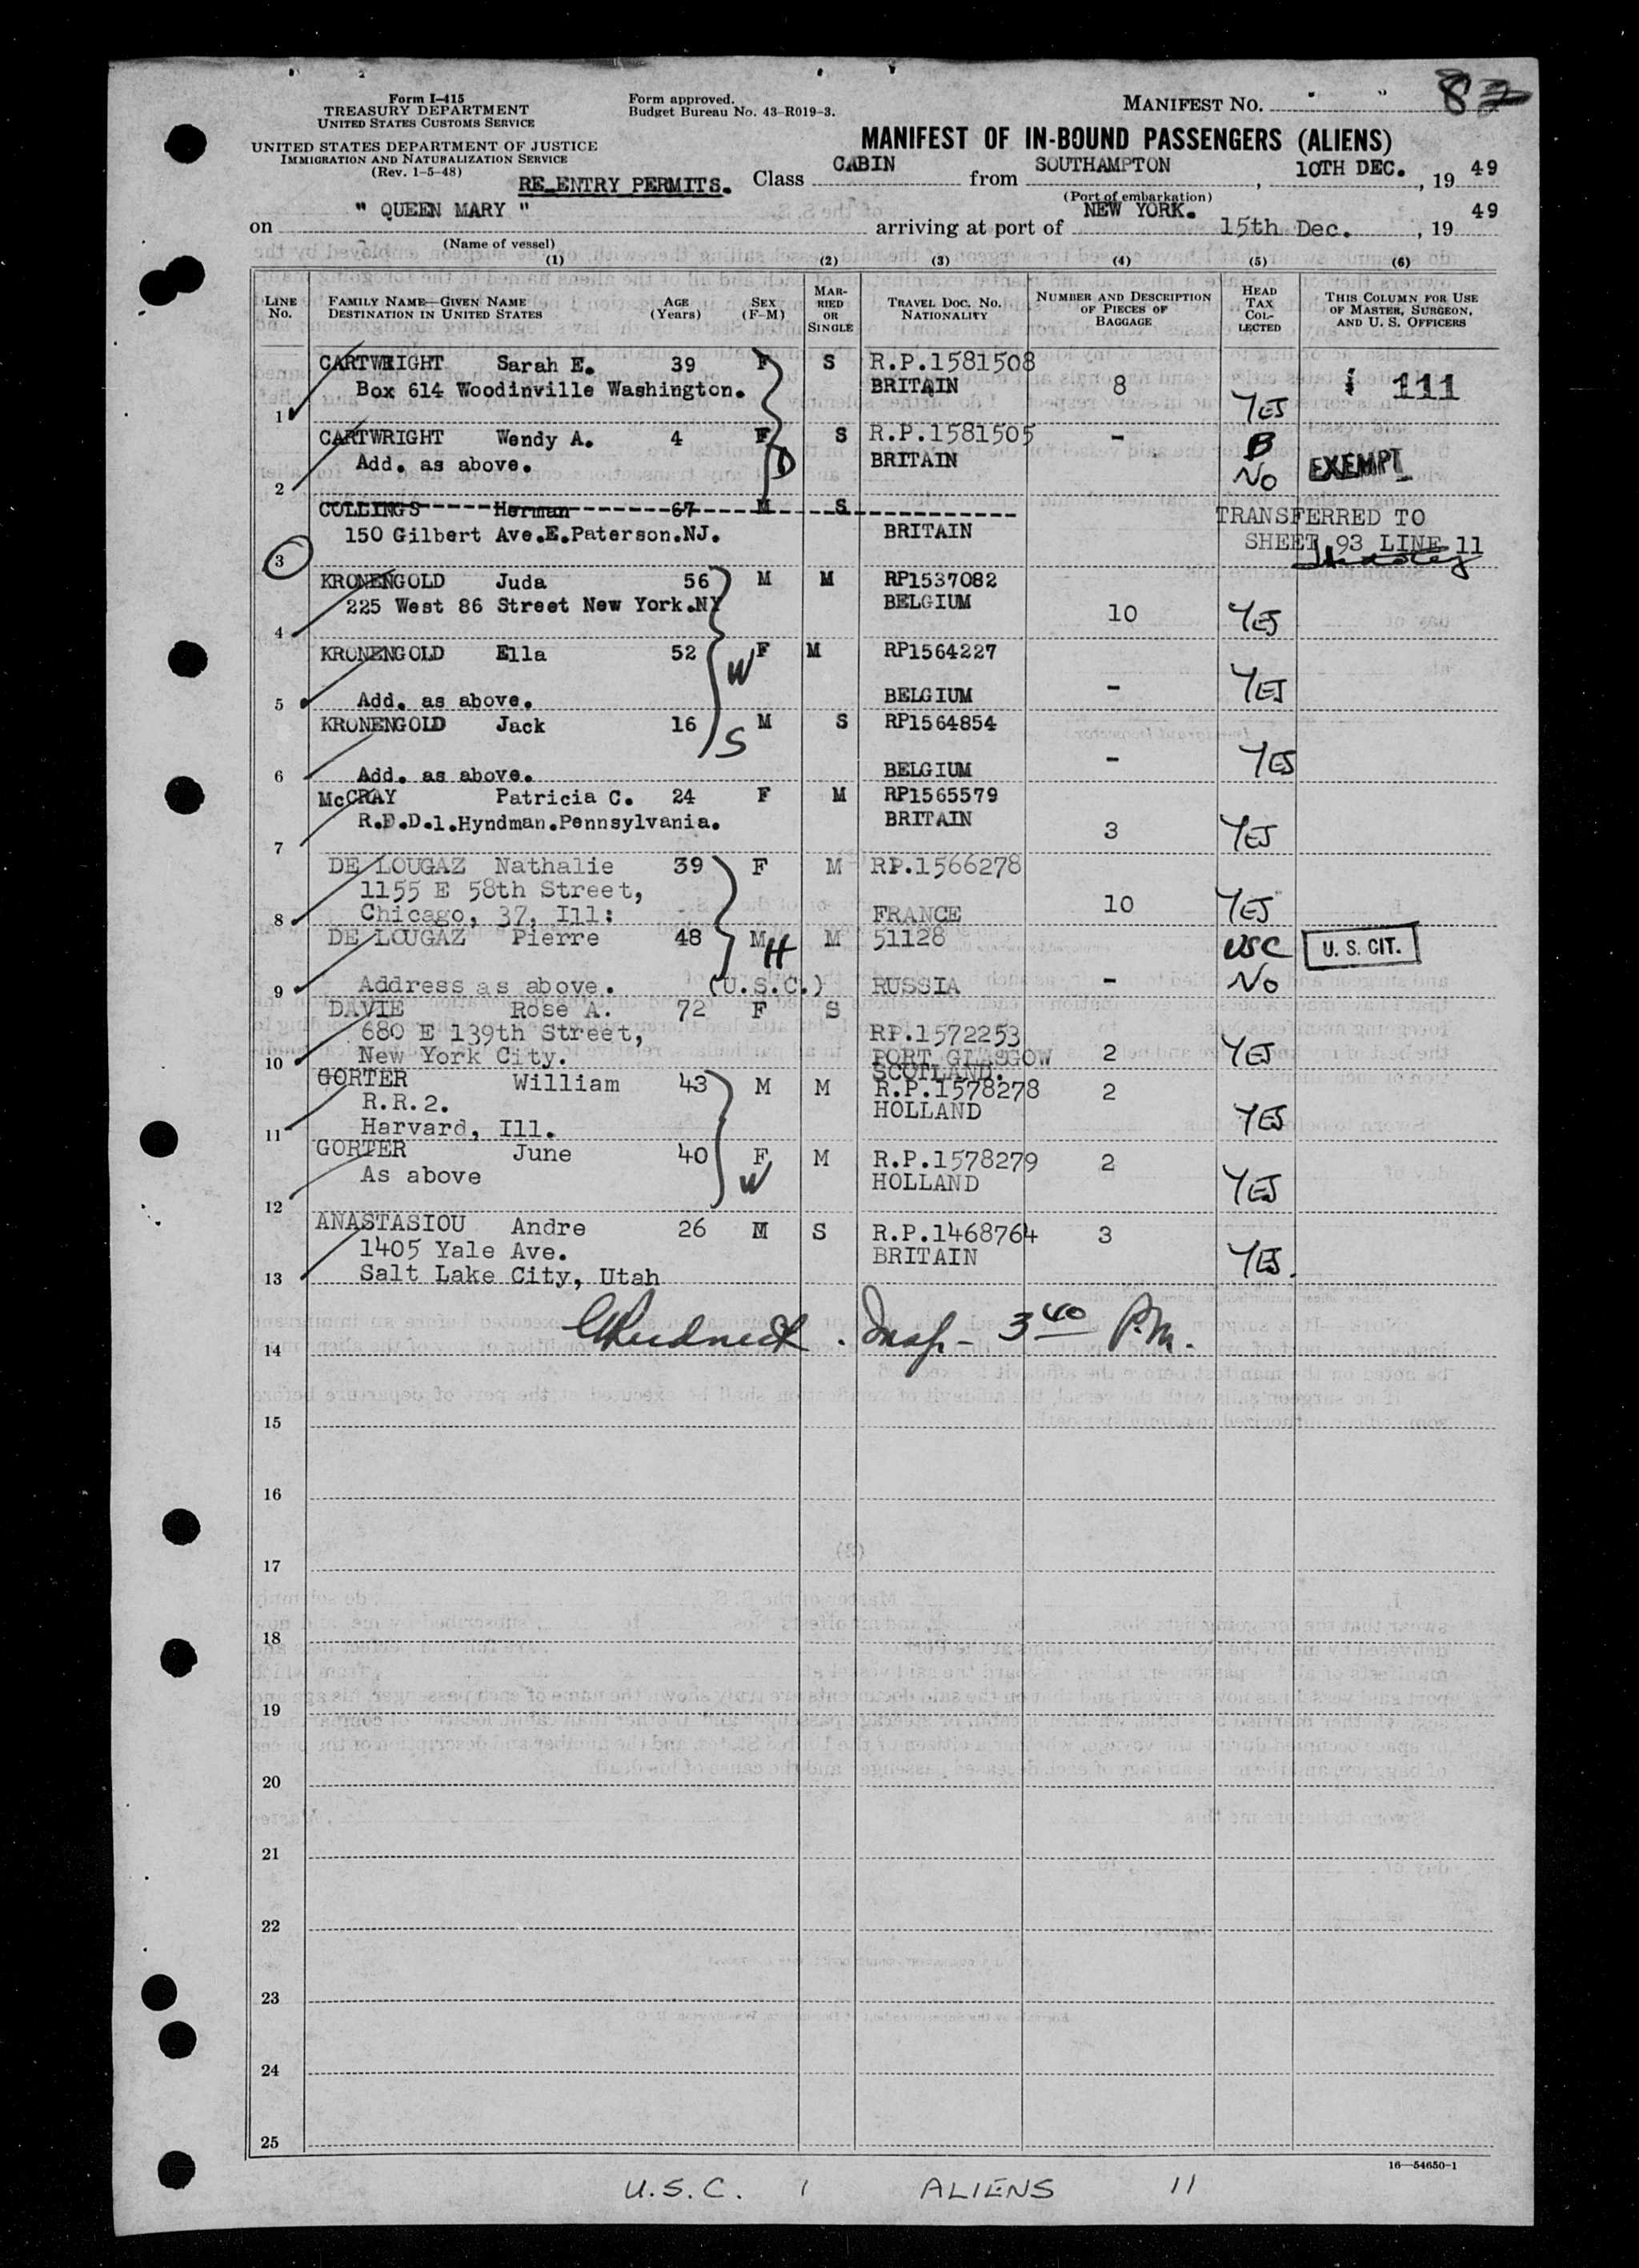 Form I-415
TREASURY DEPARTMENT
UNITED STATES CUSTOMS SERVICE
UNITED STATES DEPARTMENT OF JUSTICE
IMMIGRATION AND NATURALIZATION SERVICE
(Rev. 1-5-48)
Form approved.
Budget Bureau No. 43-R019-3.
MANIFEST NO.
MANIFEST OF IN-BOUND PASSENGERS (ALIENS)
RE_ENTRY PERMITS. Class CABIN from SOUTHAMPTON, 10TH DEC., 19 49
(Port of embarkation)
on " QUEEN MARY " arriving at port of NEW YORK. 15th Dec., 19 49
(Name of vessel)
(1) (2) (3) (4) (5) (6)
LINE No. FAMILY NAME—GIVEN NAME DESTINATION IN UNITED STATES AGE (Years) SEX (F-M) MARRIED OR SINGLE TRAVEL DOC. NO. NATIONALITY NUMBER AND DESCRIPTION OF PIECES OF BAGGAGE HEAD TAX COLLECTED THIS COLUMN FOR USE OF MASTER, SURGEON, AND U. S. OFFICERS
CARTWRIGHT Sarah E. 39 F S R.P.1581508
1 Box 614 Woodinville Washington. BRITAIN 8 YES 111
CARTWRIGHT Wendy A. 4 F S R.P.1581505 - B
2 Add. as above. D BRITAIN No EXEMPT
COLLINGS Herman 67 M S TRANSFERRED TO
3 150 Gilbert Ave.E.Paterson.NJ. BRITAIN SHEET 93 LINE 11
KRONENGOLD Juda 56 M M RP1537082
4 225 West 86 Street New York.NY BELGIUM 10 YES
KRONENGOLD Ella 52 W F M RP1564227
5 Add. as above. BELGIUM - YES
KRONENGOLD Jack 16 S M S RP1564854
6 Add. as above. BELGIUM - YES
McCRAY Patricia C. 24 F M RP1565579
7 R.F.D.1.Hyndman.Pennsylvania. BRITAIN 3 YES
DE LOUGAZ Nathalie 39 F M RP.1566278
1155 E 58th Street,
8 Chicago, 37, Ill: FRANCE 10 YES
DE LOUGAZ Pierre 48 M H M 51128 USC U. S. CIT.
9 Address as above. (U.S.C.) RUSSIA - No
DAVIE Rose A. 72 F S
680 E 139th Street, RP.1572253
10 New York City. PORT GLASGOW 2 YES
SCOTLAND.
GORTER William 43 M M R.P.1578278 2
R.R.2. HOLLAND
11 Harvard, Ill. YES
GORTER June 40 F M R.P.1578279 2
12 As above W HOLLAND YES
ANASTASIOU Andre 26 M S R.P.1468764 3
1405 Yale Ave. BRITAIN
13 Salt Lake City, Utah YES.
14 Insp - 3 40 P.M.
15
16
17
18
19
20
21
22
23
24
25
16—54650-1
U.S.C. 1 ALIENS 11